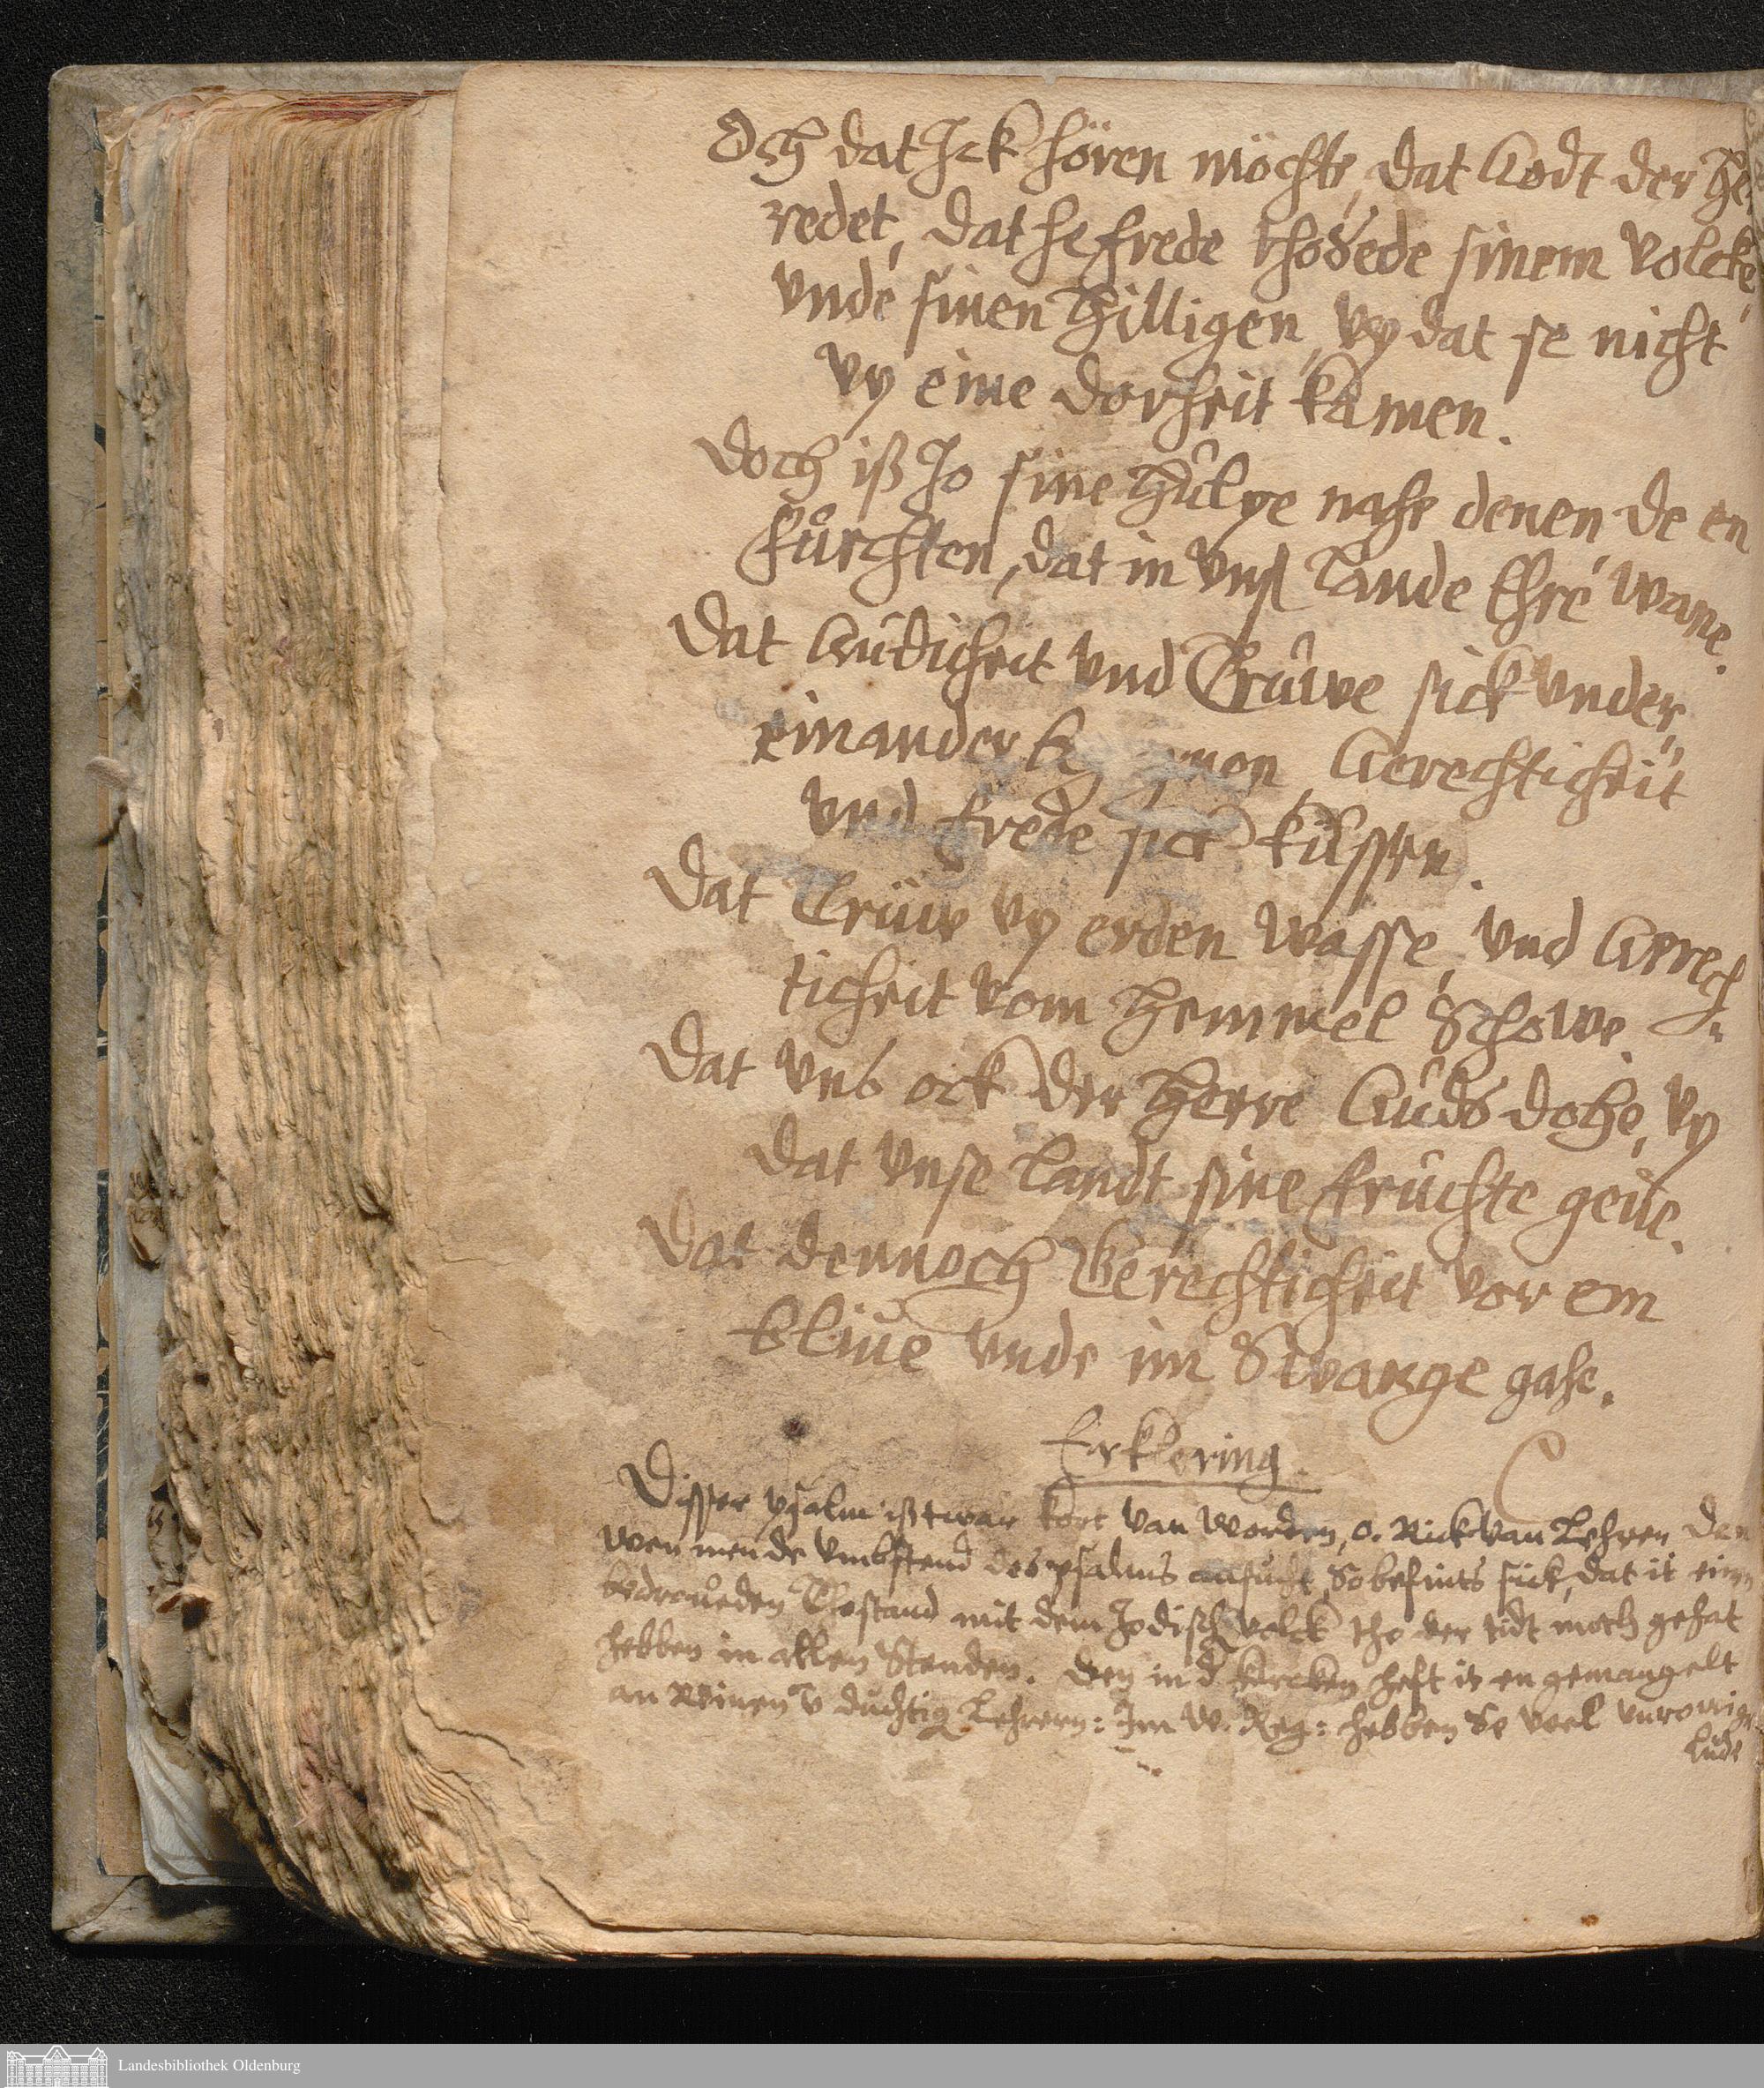 Och dat Ick hören möchte, dat Godt der He
redet, dat he frede thosede sinem volcke,
vnde sinen hilligen, vp dat se nicht
vp eine dorheit kamen.
Doch iß Jo sine hülpe nahe denen de en
fürchten, dat in vnß lande Ehre wane.
Dat Güdicheit vnd Trüwe sick vnder,
einander Gerechticheit
vnd frede sick küssen.
Dat Trüwe vp erden wasse, vnd Gerech-
ticheit vom hemmel Schowe.
Dat vns ock der Herre Güds dohe, vp
dat vnse landt sine früchte geue.
Dat dennoch Gerechticheit vor em
bliue vnde im Swange gahe.
Erklering
Disser psalm ist twar kort van worden, o. Rick van Lehren, den
wen men de vmbstend des psalms ansucht, So befints sick, dat it einen
bedroueden Thostand mit dem Jodisch volck tho der tidt moth gehat
hebben in allen Stenden. Den in d kercken heft it en gemangelt
an Reinen v duchtig Lehrern: Im W. Reg: hebben Se veel
lude
Landesbibliothek Oldenburg